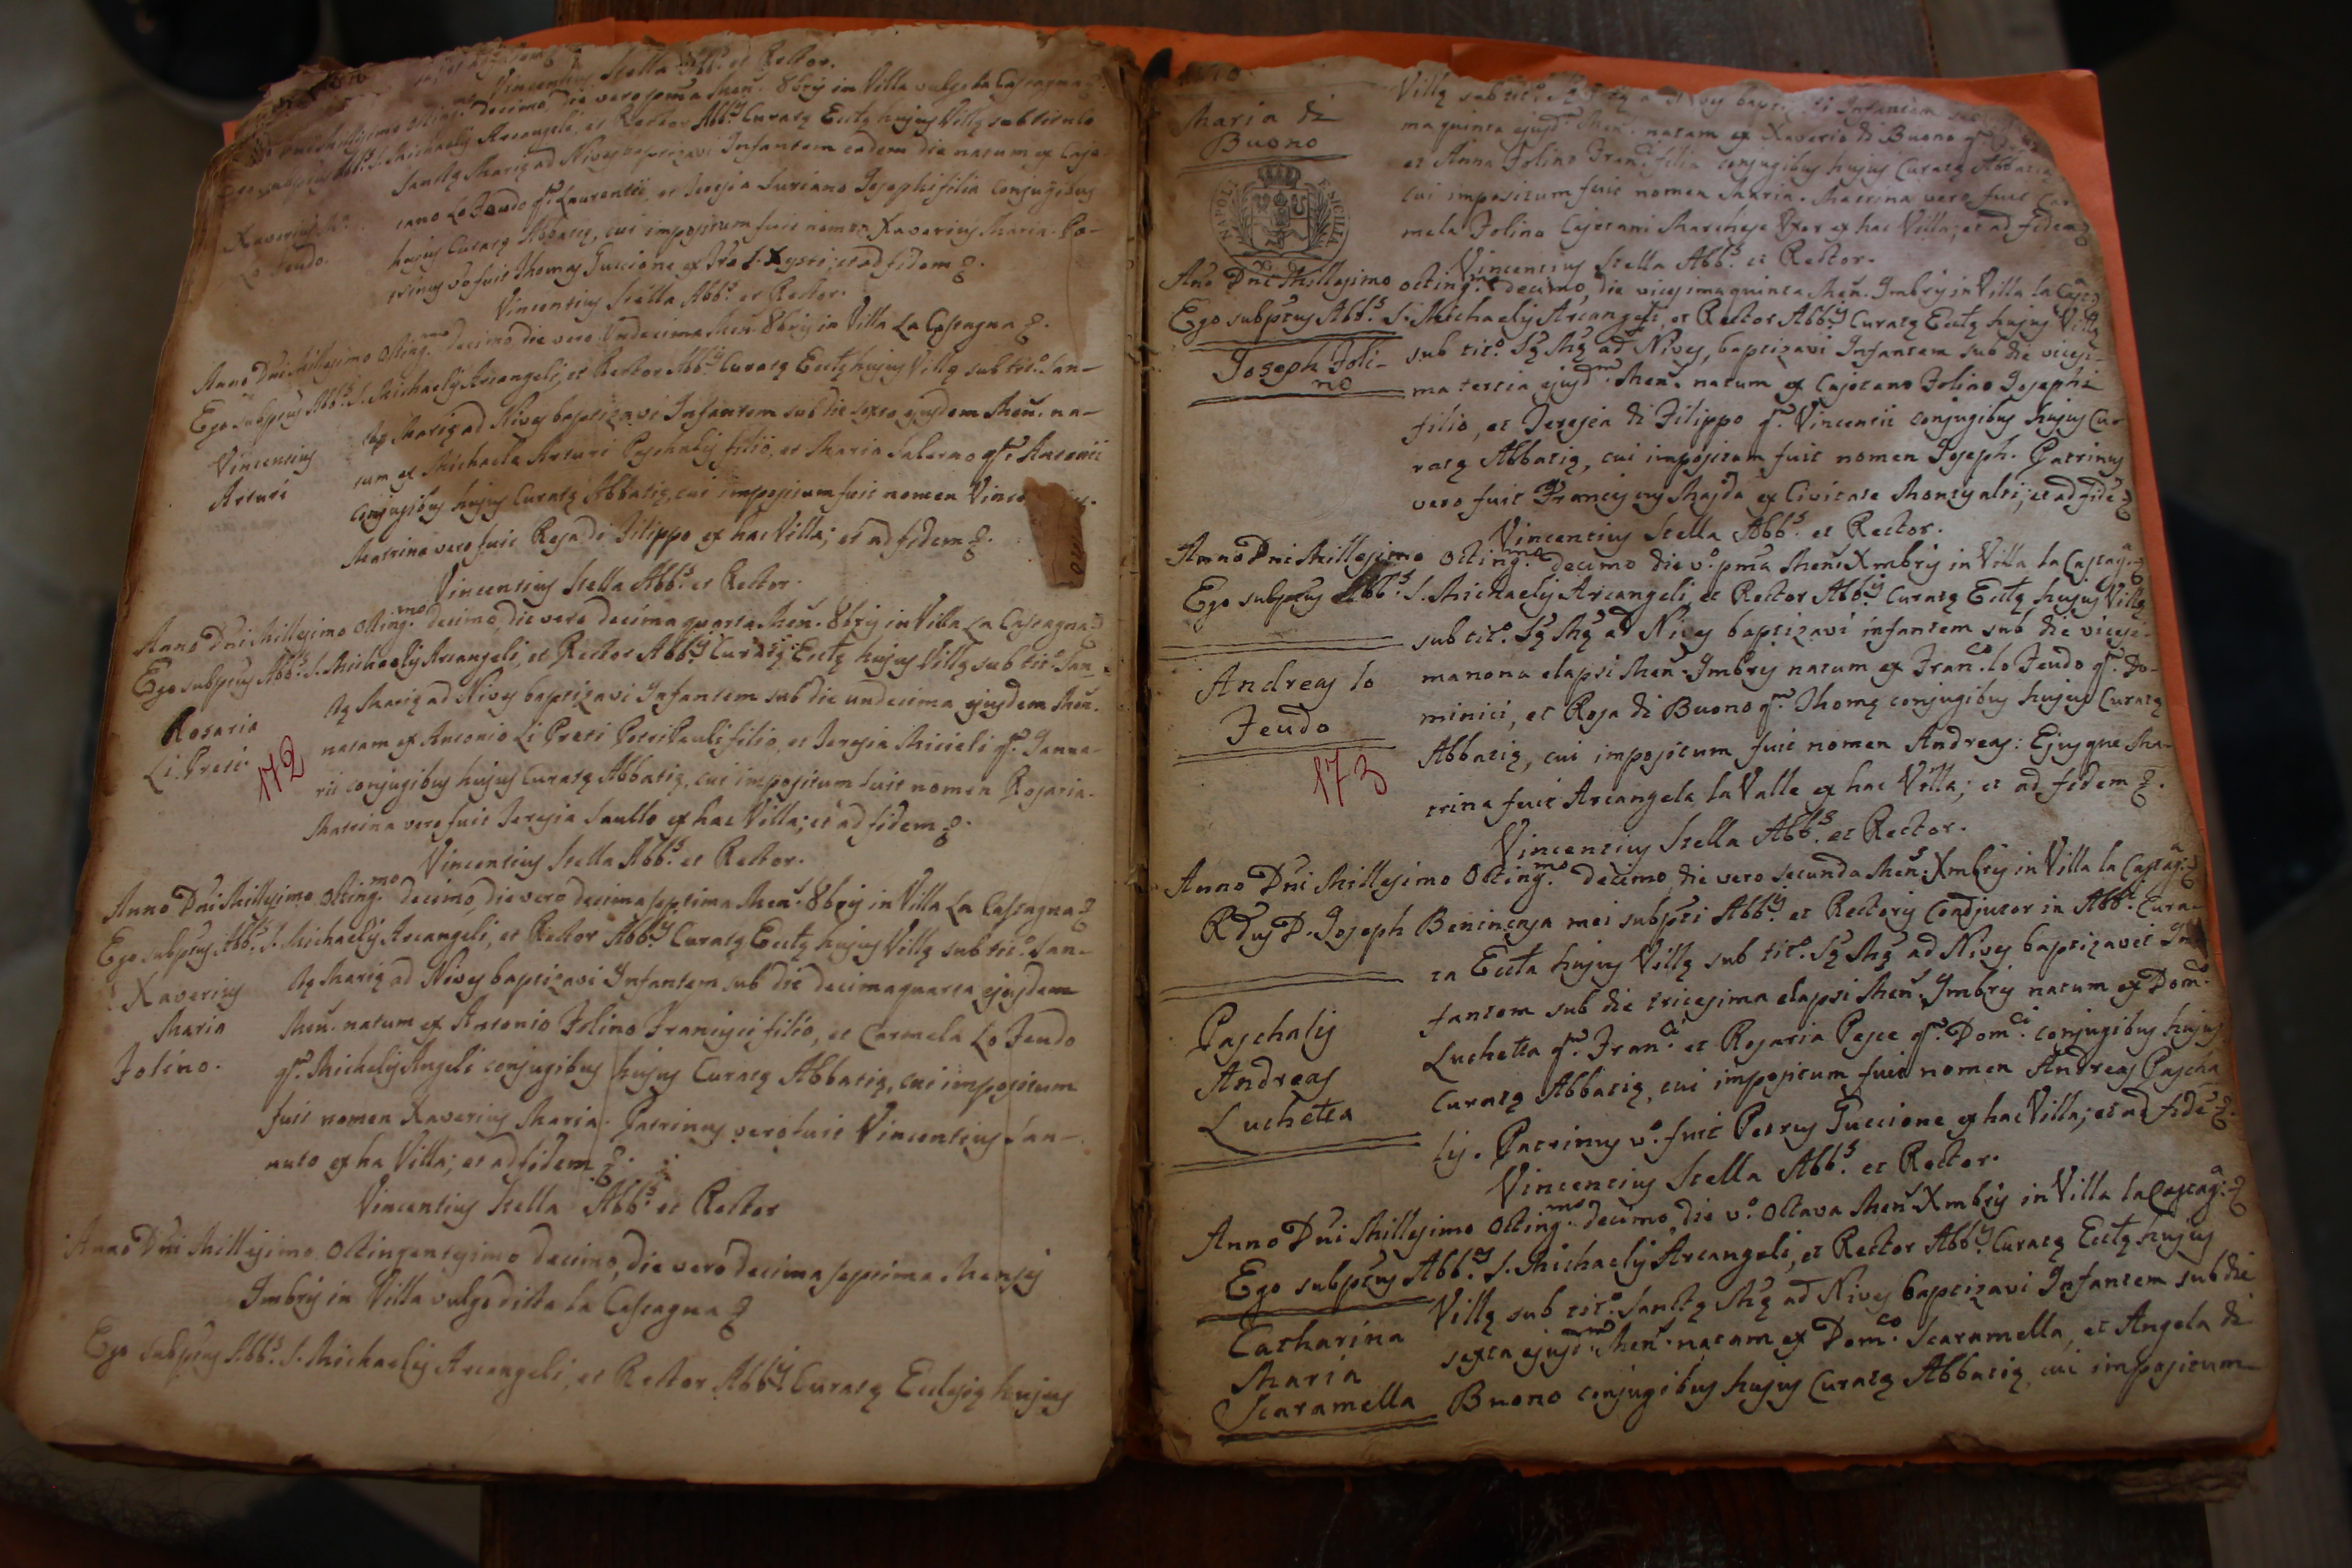 Vincentius Stella Abb.s et Rector.
decimo die vero pma Men. 8bris in Villa vulgo la Castagna
S. Michaelis Arcangeli, et Rector Abb.is Curatę Ecctę hujus Villę sub titulo
Sanctę Marię ad Nives baptizavi Infantem eadem die natum ex Caje-
tano Lo Feudo qm. Laurentii, et Teresia Suriano Josephi filia conjugibus
Xaverius M.a
Lo Feudo.
hujus Curatę Abbatię, cui impositum fuit nomen Xaverius Maria. Pa-
trinus vo fuit Thomas Guccione ex S. Xysti; et ad fidem
Vincentius Stella Abb.s et Rector.
Anno Dni Millesimo Octing.mo decimo die vero Undecima Men. 8bris in Villa La Castagna
Ego subptus Abb.s S. Michaelis Arcangeli, et Rector Abb.is Curatę Ecctę hujus Villę sub tit.o San-
Vincentius
Arturi
ctę Marię ad Nives baptizavi Infantem sub die sexto ejusdem Men. na-
tum ex Michaele Arturi Paschalis filio, et Maria Salerno qm. Antonii
conjugibus hujus Curatę Abbatię, cui impositum fuit nomen
Matrina vero fuit Rosa di Filippo ex hac Villa; et ad fidem
Vincentius Stella Abb.s et Rector.
Anno Dni Millesimo Octing.mo decimo, die vero decima quarta Men. 8bris in Villa La Castagna
Ego subptus Abb.s S. Michaelis Arcangeli, et Rector Abb.is Curatę Ecctę hujus Villę sub tit.o San-
Rosaria
Li Preti
172
ctę Marię ad Nives baptizavi Infantem sub die undecima ejusdem Men.
natam ex Antonio Li Preti Petri Pauli filio, et Teresia Micieli qm. Janua-
rii conjugibus hujus Curatę Abbatię, cui impositum fuit nomen Rosaria.
Matrina vero fuit Teresia Saullo ex hac Villa; et ad fidem
Vincentius Stella Abb.s et Rector.
Anno Dni Millesimo Octing.mo decimo, die vero decima septima Men. 8bris in Villa La Castagna
Ego subptus Abb.s S. Michaelis Arcangeli, et Rector Abb.is Curatę Ecctę hujus Villę sub tit.o San-
Xaverius
Maria
Folino.
ctę Marię ad Nives baptizavi Infantem sub die decimaquarta ejusdem
Men. natum ex Antonio Folino Francisci filio, et Carmela Lo Feudo
qm. Michelis Angeli conjugibus hujus Curatę Abbatię, cui impositum
fuit nomen Xaverius Maria. Patrinus vero fuit Vincentius San-
nuto ex ha Villa; et ad fidem
Vincentius Stella Abb.s et Rector
Anno Dni Millesimo Octingentesimo decimo, die vero decima septima Mensis
9mbris in Villa vulgo dicta la Castagna
Ego subptus Abb.s S. Michaelis Arcangeli, et Rector Abb.is Curatę Ecclesię hujus
Maria di
Buono
NAPOL. E SICILIA
Villę sub tit.o Nives Infantem
ma quinta ejusd. Men. natam ex Xaverio di Buono qm.
et Anna Folino Franci filia conjugibus hujus Curatę Abbatię
cui impositum fuit nomen Maria. Matrina vero fuit Car-
mela Folino Cajetani Marchese Uxor ex hac Villa; et ad fidem
Vincentius Stella Abb.s et Rector.
Ano Dni Millesimo Octing.mo decimo, die vicesima quinta Men. 9mbris in Villa la Castag
Ego subptus Abb.s S. Michaelis Arcangeli, et Rector Abb.is Curatę Ecctę hujus Villę
Joseph Foli-
no
sub tit.o Sę Mę ad Nives, baptizavi Infantem sub die vicesi-
ma tertia ejusd.m Men. natum ex Cajetano Folino Josephi
filio, et Teresia di Filippo qm. Vincentii conjugibus hujus Cur
ratę Abbatię, cui impositum fuit nomen Joseph. Patrinus
vero fuit Franciscus Majda ex Civitate Montisalti; et ad fidē
Vincentius Stella Abb.s et Rector.
Anno Dni Millesimo Octing.mo decimo die v.o pma Men. Xmbris in Villa la Castag.a
Ego subptus Abb.s S. Michaelis Arcangeli, et Rector Abb.is Curatę Ecctę hujus Villę
Andreas lo
Feudo
173
sub tit.o Sę Mę ad Nives baptizavi infantem sub die vicesi-
ma nona elapsi Men. 9mbris natum ex Fran.co lo Feudo qm. Do-
minici, et Rosa di Buono qm. Thomę conjugibus hujus Curatę
Abbatię, cui impositum fuit nomen Andreas: Ejusque Ma-
trina fuit Arcangela la Valle ex hac Villa; et ad fidem
Vincentius Stella Abb.s et Rector.
Anno Dni Millesimo Octing.mo decimo, die vero secunda Men. Xmbris in Villa la Castag.a
Rdus D. Joseph Benincasa mei subpti Abb.is et Rectoris Coadjutor in Abb. Cura-
ta Eccta hujus Villę sub tit.o Sę Mę ad Nives baptizavit In
Paschalis
Andreas
Luchetta
fantem sub die tricesima elapsi Men. 9mbris natum ex Dom.co
Luchetta qm. Fran.ci et Rosaria Pesce qm. Dom.ci conjugibus hujus
Curatę Abbatię, cui impositum fuit nomen Andreas Pascha
lis. Patrinus v.o fuit Petrus Guccione ex hac Villa; et ad fidē
Vincentius Stella Abb.s et Rector.
Anno Dni Millesimo Octing.mo decimo, die v.o Octava Men. Xmbris in Villa la Castag.a
Ego subptus Abb.s S. Michaelis Arcangeli, et Rector Abb.is Curatę Ecctę hujus
Catharina
Maria
Scaramella
Villę sub tit.o Sanctę Mę ad Nives baptizavi Infantem sub die
sexta ejusd.m Men. natam ex Dom.co Scaramella, et Angela di
Buono conjugibus hujus Curatę Abbatię, cui impositum